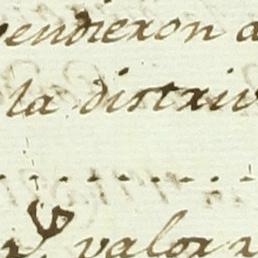 vendieron a
la distriv
valor